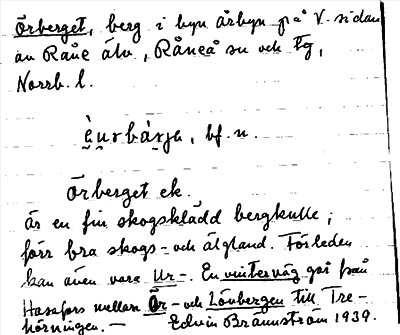 Örberget, berg i byn Årbyn på V. sidan
av Råne älv, Råneå sn och tg,
Norrb. l.
bf. n.
Örberget ek.
är en fin skogsklädd bergkulle;
förr bra skogs- och älgland. Förleden
kan även vara Ur-. En vinterväg går från
Hasafors mellan Ör- och Lövbergen till Tre-
hörningen. — Edvin Brännström 1939.